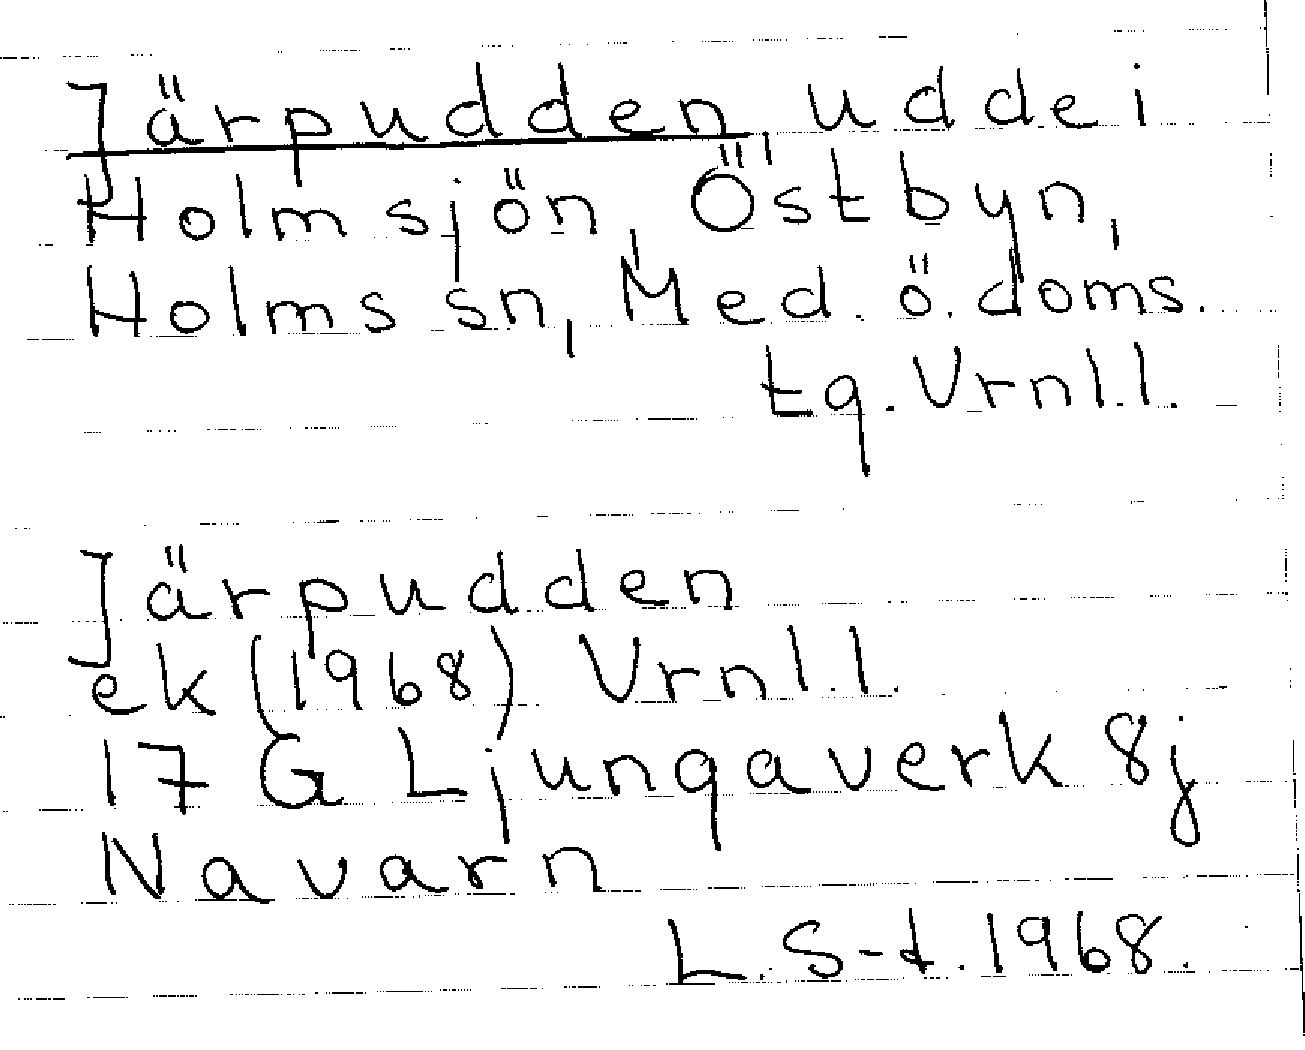 Järpudden, udde i
Holmsjön, Östbyn,
Holms sn, Med. ö. doms.
tg. Vrnll.
Järpudden
ek (1968) Vrnll.
17 G Ljungaverk 8j
Navarn
L. S-d. 1968.